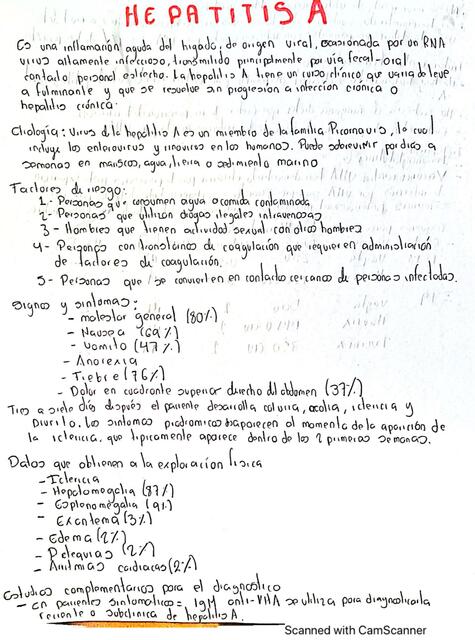 HEPATITIS A
Es una inflamación aguda del higado, de origen viral, ocasionada por un RNA
virus altamente infeccioso, transmitido principalmente por via fecal-oral
contacto personal estrecho. La hepatitis A tiene un curso clínico que varia de leve
a fulminante y que se resuelve sin progresión a infección crónica o
hepatitis crónica.
Etiología: Virus de la hepatitis A es un miembro de la familia Picornavirus, la cual
incluye los enterovirus y rinovirus en los humanos. Puede sobrevivir por dias a
semanas en mariscos, agua, tierra o sedimento marino
Factores de riesgo:
1- Personas que consumen agua o comida contaminada
2- Personas que utilizan drogas ilegales intravenosas
3- Hombres que tienen actividad sexual con otros hombres
4- Personas con transtornos de coagulación que requieren administración
de factores de coagulación.
5- Personas que se convierten en contacto cercano de personas infectadas.
Signos y sintomas:
- malestar general (80%)
- Nausea (69%)
- Vomito (47%)
- Anorexia
- Fiebre (76%)
- Dolor en cuadrante superior derecho del abdomen (37%)
Tres a siete dias después el paciente desarrolla coluria, acolia, ictericia y
prurito. Los sintomas prodromicos desaparecen al momento de la aparición de
la ictericia, que tipicamente aparece dentro de las 2 primeras semanas.
Datos que obtienen a la exploración fisica
- Ictericia
- Hepatomegalia (87%)
- Esplenomegalia (9%)
- Exantema (3%)
- Edema (2%)
- Petequias (2%)
- Arritmias cardiacas (2%)
Estudios complementarios para el diagnostico
- En pacientes sintomaticos = IgM anti-VHA se utiliza para diagnosticarla
reciente o subclinica de hepatitis A.
Scanned with CamScanner